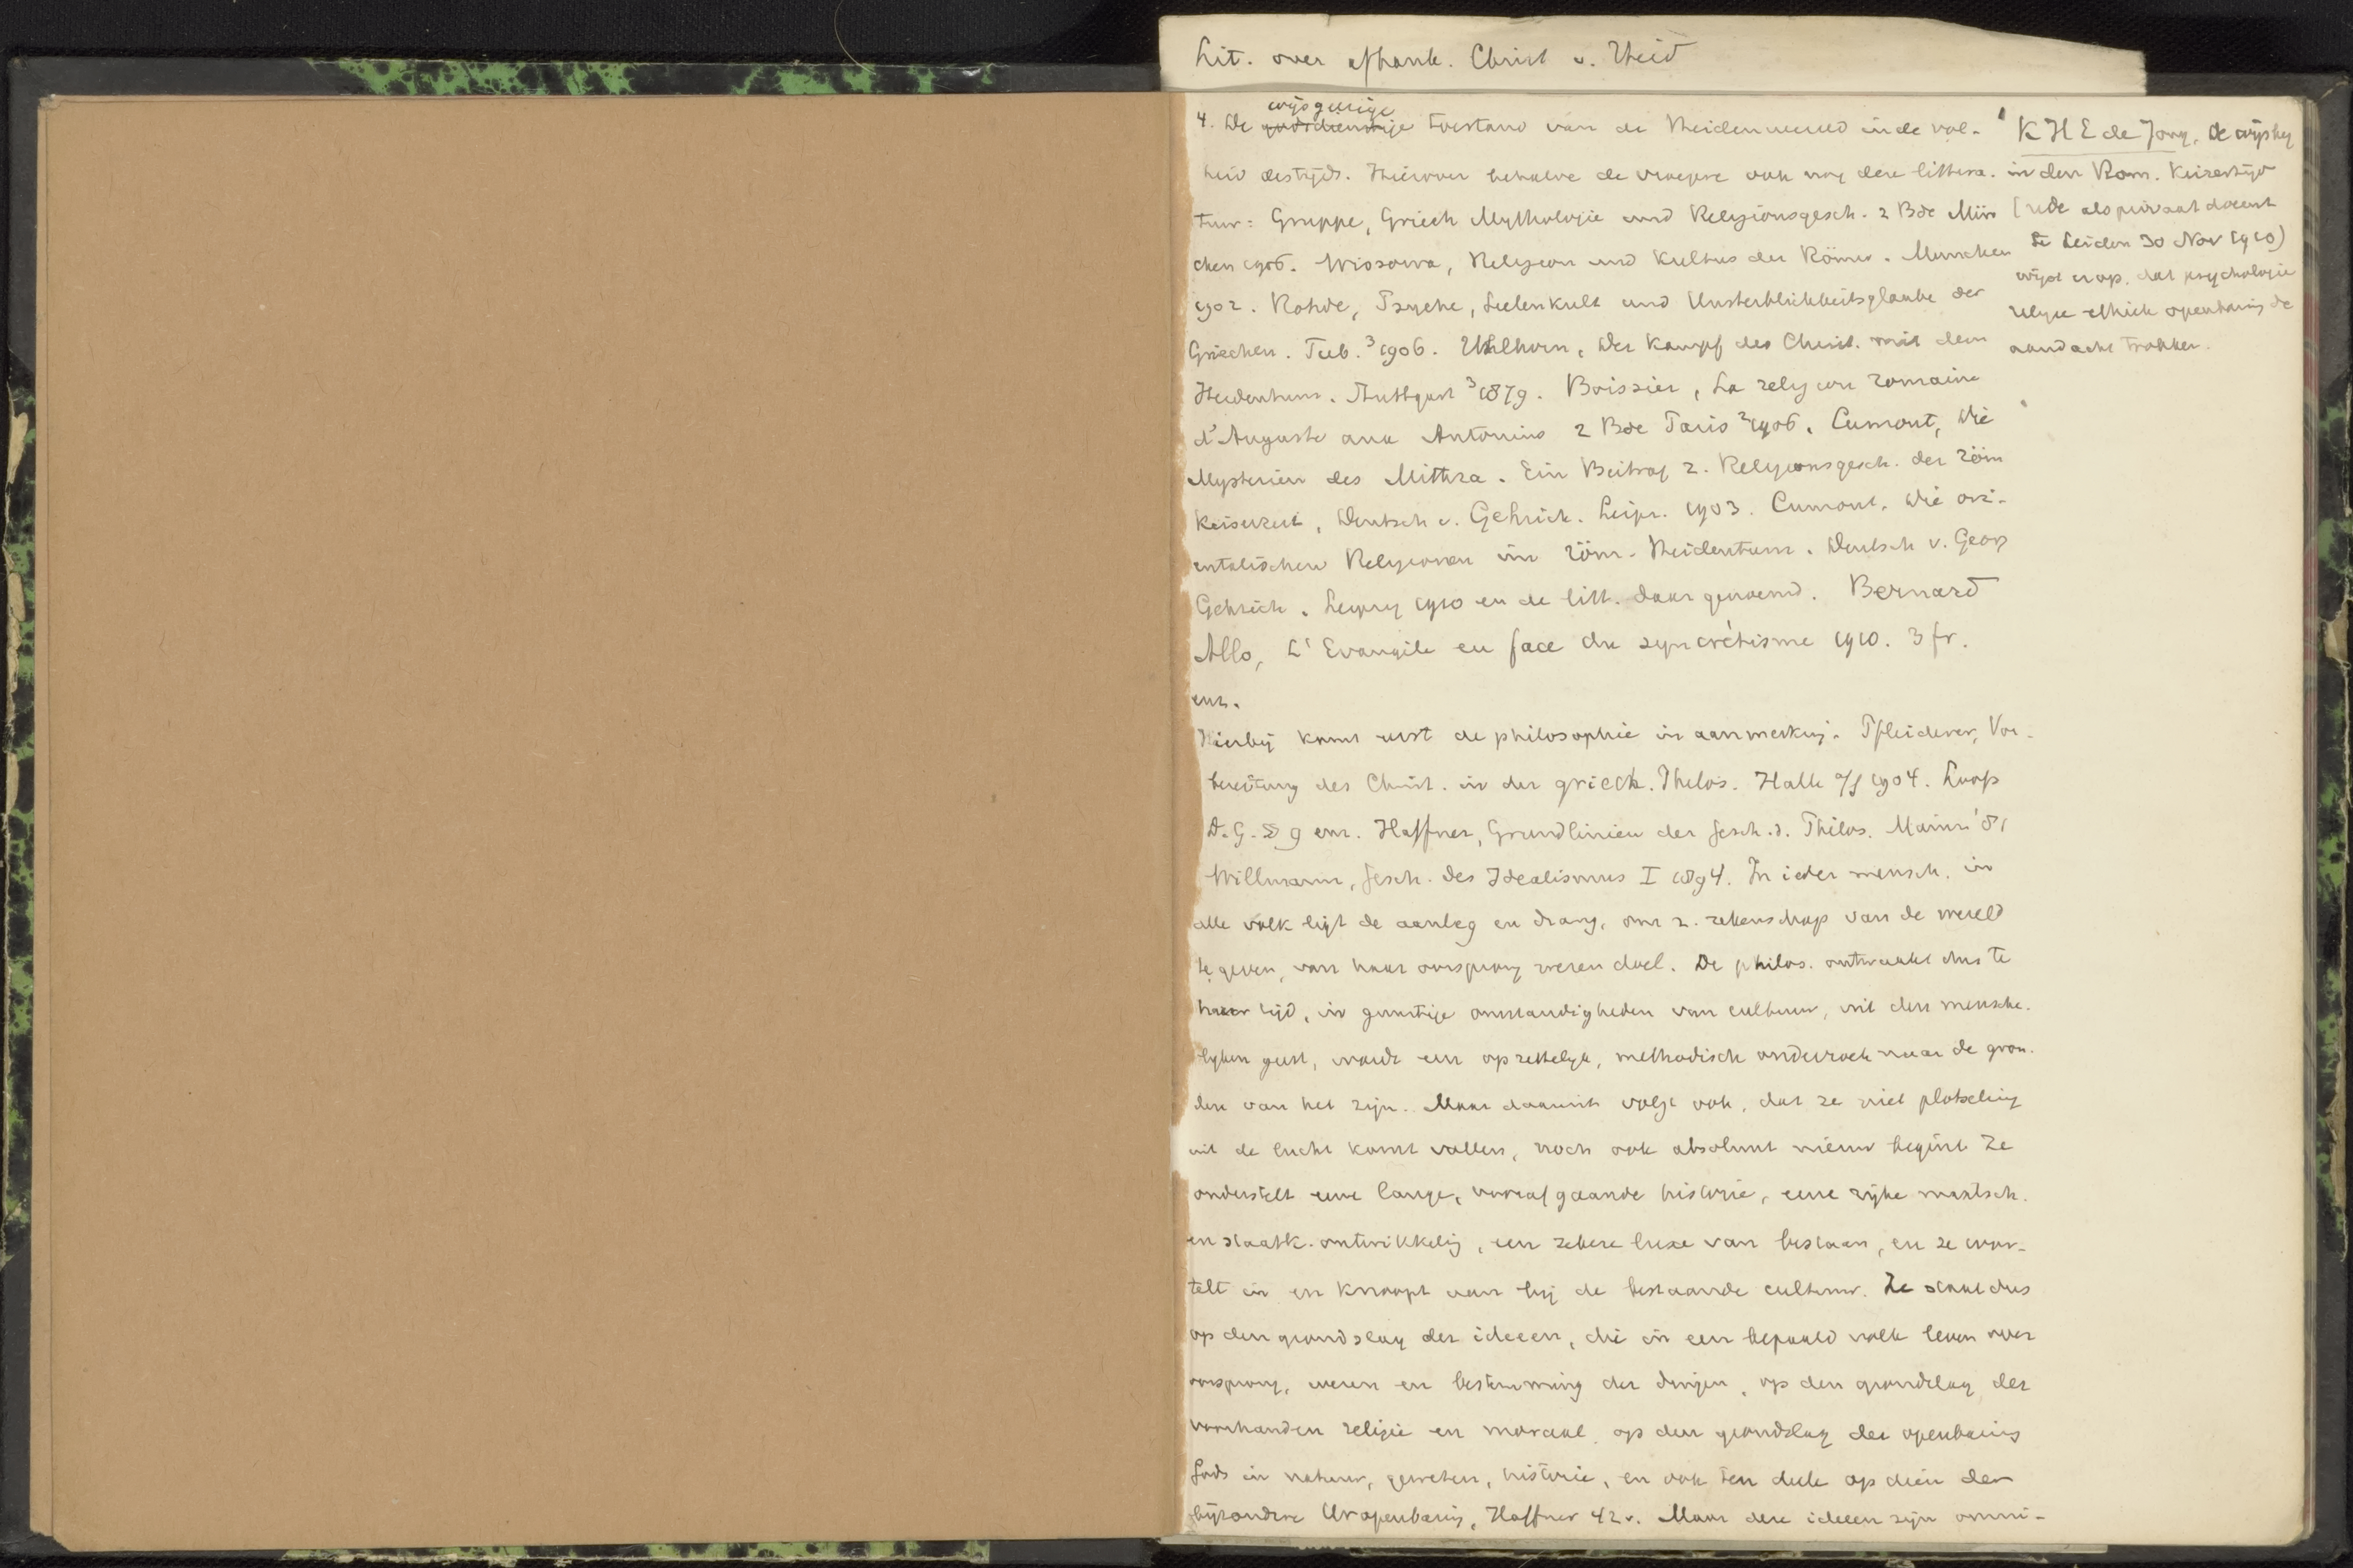 Lit. over afhank. Christ v. Heid
wijsgeerige
4. De godsdienstige toestand van de Heidenwereld in de vol-
heid des tijds. Hierover behalve de vroegere ook nog deze littera-
tuur: Gruppe, Griech Mythologie und Religionsgesch. 2 Bde Mün
chen 1906. Wissowa, Religion und Kultus der Römer. Munchen
1902. Rohde, Psyche, Seelenkult und Unsterblichkeitsglaube der
Griechen. Tub. ³1906. Uhlhorn, Der Kampf des Christ. mit dem
Heidenthum. Stuttgart ³1879. Boissier, La religion romaine
d'Auguste aux Antonins 2 Bde Paris ²1906. Cumont, Die
Mysterien des Mithra. Ein Beitrag z. Religionsgesch. der röm
Keiserzeit, Deutsch v. Gehrich. Leipz. 1903. Cumont, Die ori-
entalischen Religionen im röm. Heidentum. Deutsch v. Georg
Gehrich. Leipzig 1910 en de litt. daar genoemd. Bernard
Allo, L'Evangile en face du syncrétisme 1910. 3 fr.
enz.
Hierbij komt eerst de philosophie in aanmerking. Pfleiderer, Vor-
bereitung des Christ. in der griech. Philos. Halle a/S 1904. Loofs
D.G. § 9 enz. Haffner, Grundlinien der Gesch. d. Philos. Mainz '81
Willmann, Gesch. des Idealismus I 1894. In ieder mensch, in
elk volk ligt de aanleg en drang, om z. rekenschap van de wereld
te geven, van haar oorsprong wezen doel. De philos. ontwaakt dus te
haver tijd, in gunstige omstandigheden van cultuur, uit den mensche-
lijken geest, wordt een opzettelijk, methodisch onderzoek naar de gron-
den van het zijn. Maar daaruit volgt ook, dat ze niet plotseling
uit de lucht komt vallen, noch ook absoluut nieuw begint Ze
onderstelt eene lange, voorafgaande historie, eene rijke maatsch.
en staatk. ontwikkeling, een zekere luxe van bestaan, en ze wor-
telt in en knoopt aan bij de bestaande cultuur. Ze staat dus
op den grondslag der ideeen, die in een bepaald volk leven over
oorsprong, wezen en bestemming der dingen, op den grondslag der
voorhanden religie en moraal, op den grondslag der openbaring
Gods in natuur, geweten, historie, en ook ten deele op dien der
bijzondere Uropenbaring, Haffner 42v. Maar deze ideeen zijn onmi-
K H E de Jong, De wijsbeg
in den Rom. Keizertijd
(rede als privaat docent
te Leiden 30 Nov 1910)
wijst erop, dat psychologie
religie ethiek openbaring de
aandacht trokken.